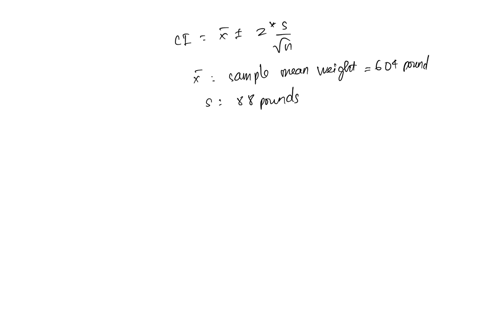 CI = x̄ ± z* s/√n
x̄ : sample mean weight = 604 pound
s : 88 pounds